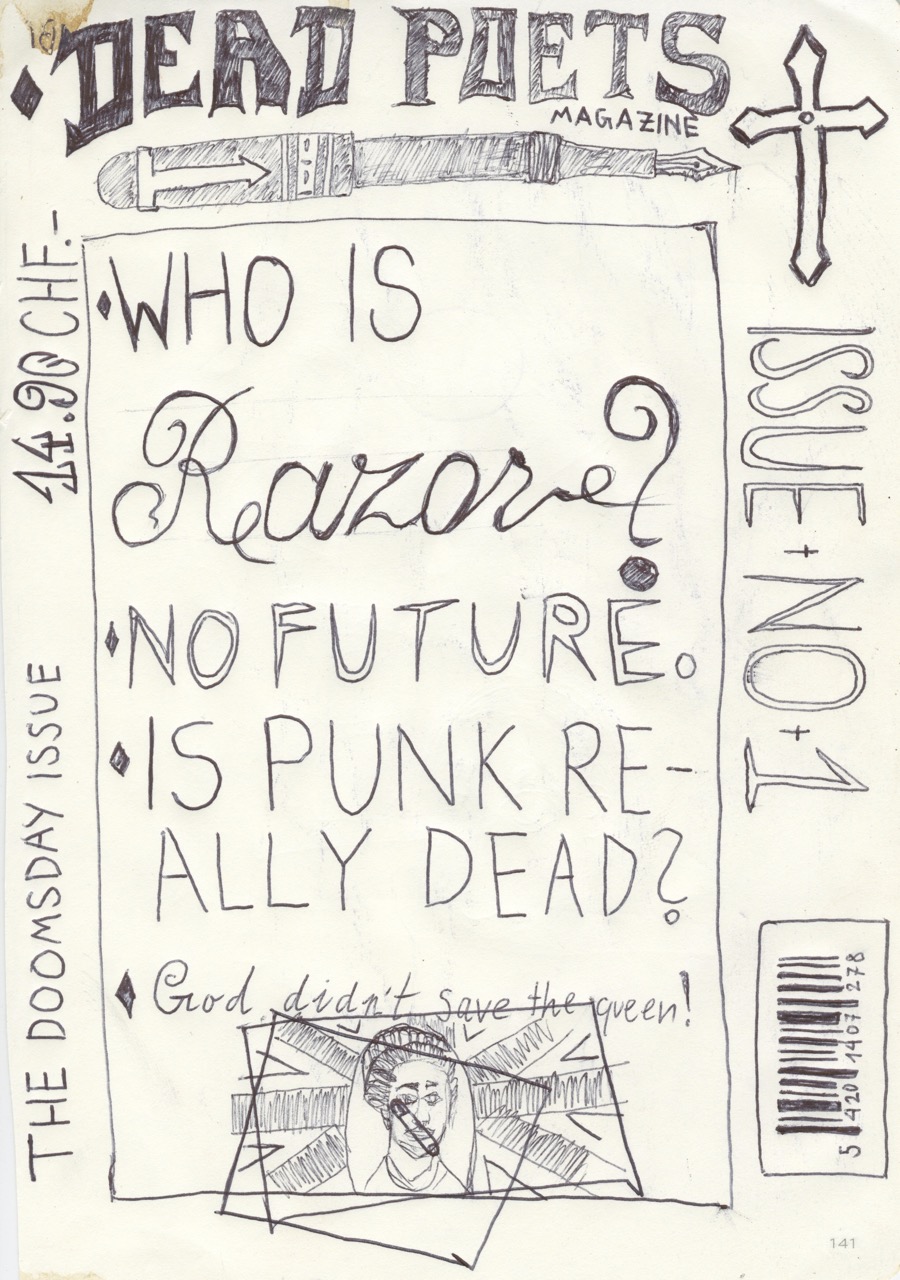 DEAD POETS
MAGAZINE
14.90 CHF.-
WHO IS
Razore?
NO FUTURE.
IS PUNK RE-
ALLY DEAD?
God didn't save the queen!
THE DOOMSDAY ISSUE
ISSUE+NO+1
5 420 1407 278
141